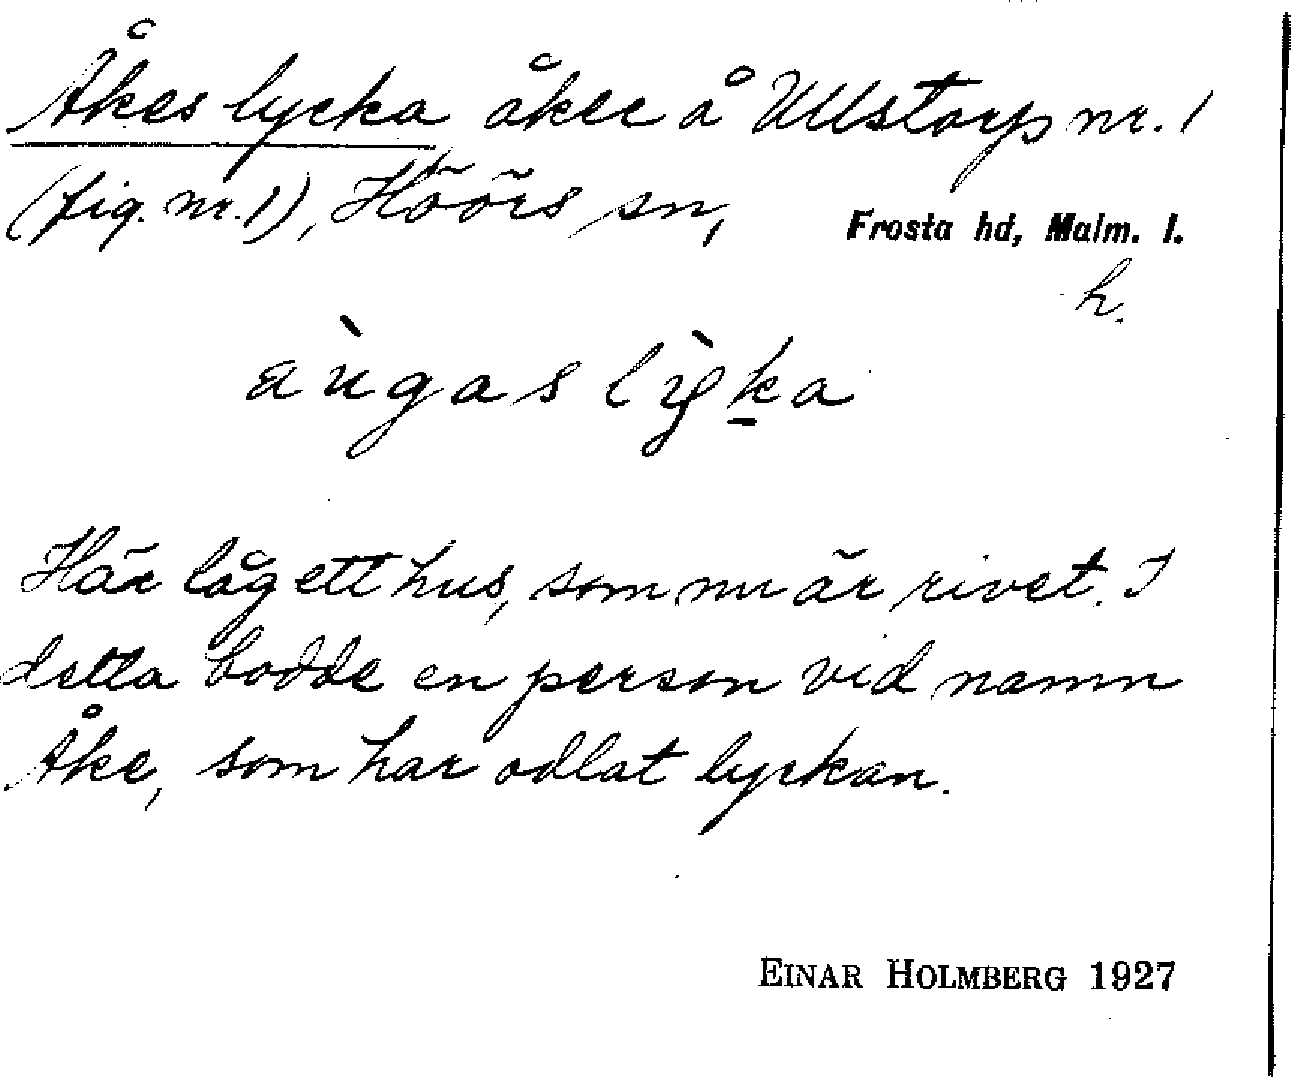 Åkes lycka åker å Ullstorp nr. 1
(fig. nr. 1), Höörs sn,
Frosta hd, Malm. l.
h.
Här låg ett hus, som nu är rivet. I
detta bodde en person vid namn
Åke, som har odlat lyckan.
EINAR HOLMBERG 1927